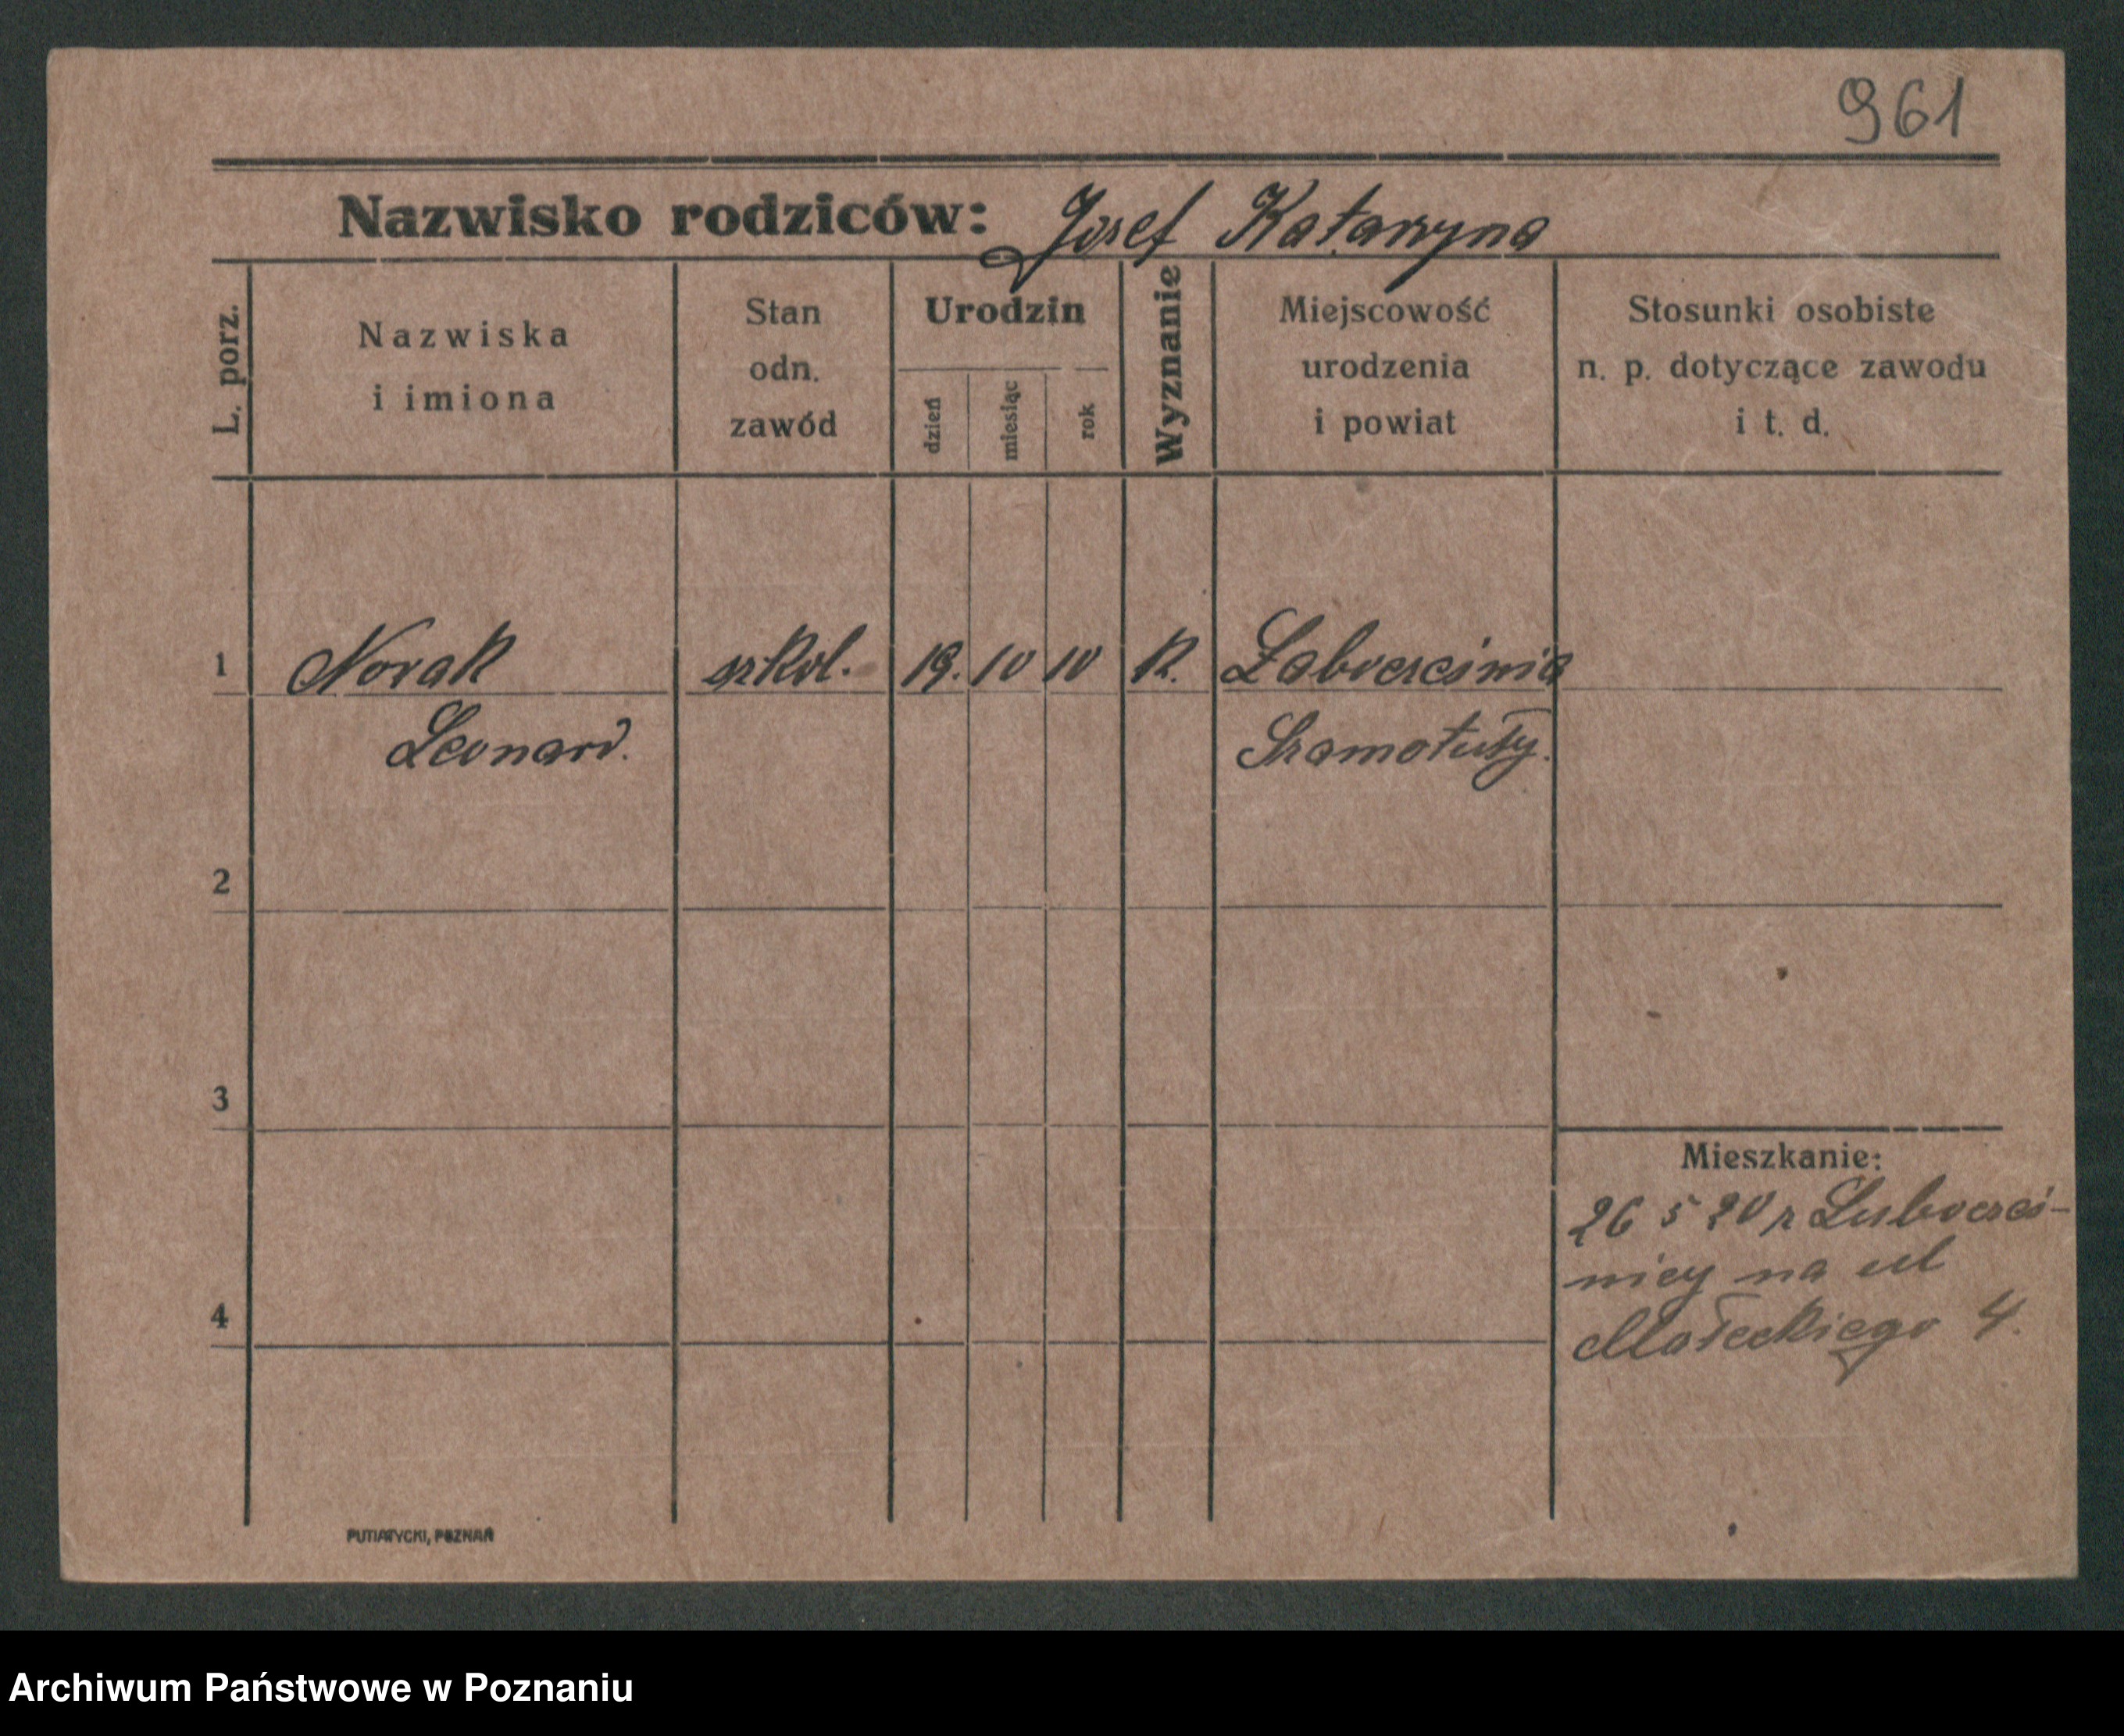 961
Nazwisko rodziców: Josef Katarzyna
L. porz.
Nazwiska
i imiona
Stan
odn.
zawód
Urodzin
dzień
miesiąc
rok
Wyznanie
Miejscowość
urodzenia
i powiat
Stosunki osobiste
n. p. dotyczące zawodu
i t. d.
1 Novak szkol. 19. 10 10 K.
Leonard. Szamotuły.
2
3
Mieszkanie:
26 5 20 z Lubocześ-
nicy na ul
4
Małeckiego 4.
PUTIATYCKI, POZNAŃ
Archiwum Państwowe w Poznaniu